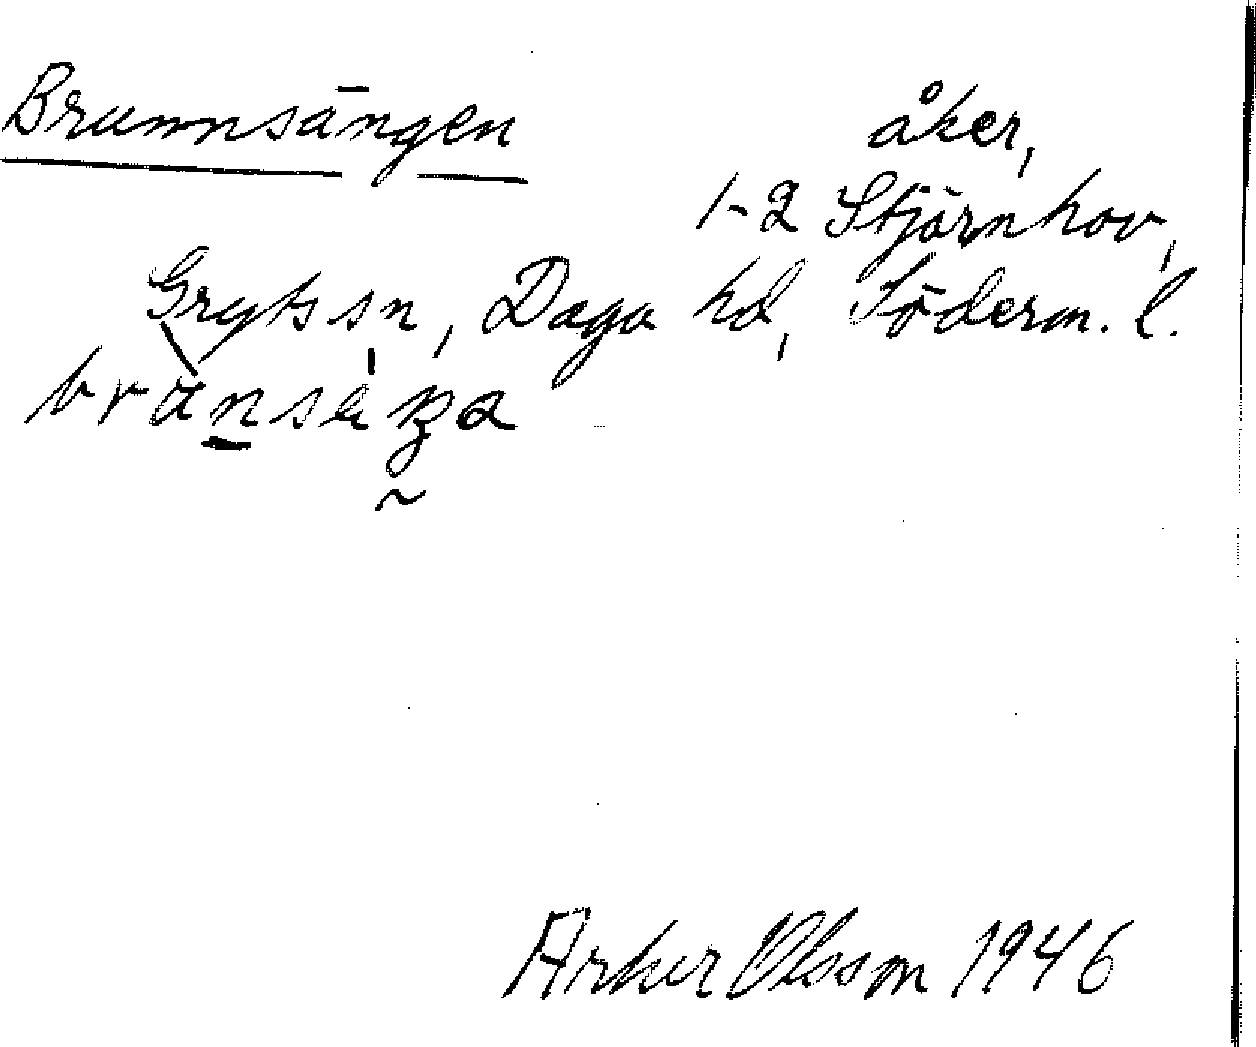 Brunnsängen åker,
1-2 Stjärnhov,
Gryts sn, Daga hd, Söderm. l.
Olsson 1946